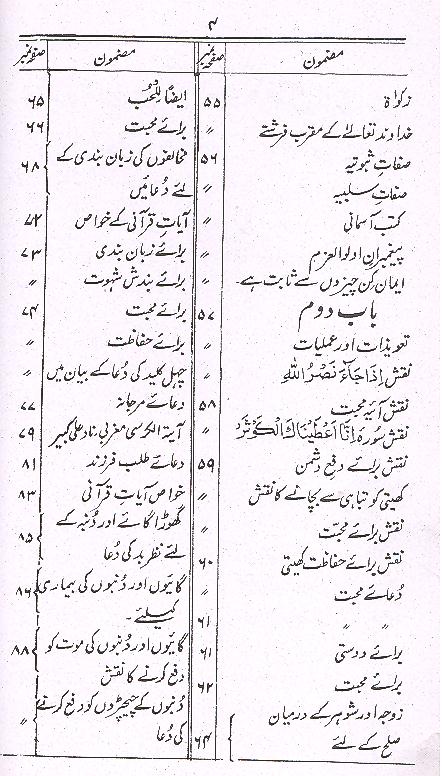 ۴
مضمون
صفحہ نمبر
زکواۃ
۵۵
خداوند تعالےٰ کے مقرب فرشتے
〃
صفات ثبوتیہ
۵۶
صفات سلبیہ
〃
کتب آسمانی
〃
پیغمبران اولوالعزم
〃
ایمان کن چیزوں سے ثابت ہے۔
〃
باب دوم
۵۷
تعویذات اور عملیات
〃
نقش اِذَا جَآءَ نَصْرُ اللّٰهِ
〃
نقش آئیہ محبت
۵۸
نقش سورہ اِنَّا اَعْطَيْنَاكَ الْكَوْثَرَ
〃
نقش برائے دفع دشمن
۵۹
کھیتی کو تباہی سے بچانے کا نقش
〃
نقش برائے محبت
〃
نقش برائے حفاظت کھیتی
۶۰
دُعائے محبت
〃
〃 〃
۶۱
برائے دوستی
۶۱
برائے محبت
۶۲
زوجہ اور شوہر کے درمیان
صلح کے لئے
۶۴
مضمون
صفحہ نمبر
ایضًا لِلحُب
۶۵
برائے محبت
۶۶
مخالفوں کی زبان بندی کے
لئے دُعائیں
۶۸
آیاتِ قرآنی کے خواص
۷۲
برائے زبان بندی
۷۳
برائے بندش شہوت
〃
برائے محبت
۷۴
برائے حفاظت
〃
چہل کلید کی دُعا کے بیان میں
〃
دعائے مرجانہ
۷۷
آیتہ الکرسی مغربی، ناد علی کبیر
۷۹
دعائے طلب فرزند
۸۱
خواص آیاتِ قرآنی
۸۳
گھوڑا گائے اور دُنبہ کے
لئے نظر بد کی دُعا
۸۵
گایوں اور دُنبوں کی بیماری
کیلئے۔
۸۶
گایوں اور دُنبوں کی موت کو
دفع کرنے کا نقش
۸۸
دُنبوں کے چیچڑوں کو دفع کرنے
کی دُعا
〃